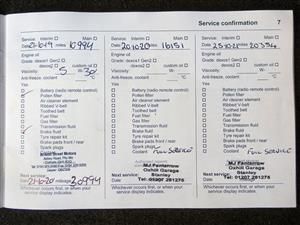 Service confirmation 7
Service: Interim ☐ Manual ☐
Date 21·10·19 miles 10994
Engine oil
Grade: dexos1 Gen2 ☐
dexos2 ☐ custom oil ☐
Viscosity: 5 W- 30
Anti-freeze, coolant °C
Yes
☐ Battery (radio remote control)
☐ Pollen filter
☐ Air cleaner element
☐ Ribbed V-belt
☐ Toothed belt
☐ Fuel filter
☐ Gas filter
☐ Transmission fluid
☐ Brake fluid
☐ Tyre repair kit
☐ Brake pads front / rear
☐ Spark plugs
Bristol Street Motors
Next service:
21-10-20 mileage 20994
Whichever occurs first, or when your
service display indicates.
Service: Interim ☐ Main ☐
Date 20/10/20 miles 16151
Engine oil
Grade: dexos1 Gen2 ☐
dexos2 ☐ custom oil ☐
Viscosity: W-
Anti-freeze, coolant °C
Yes
☐ Battery (radio remote control)
☐ Pollen filter
☐ Air cleaner element
☐ Ribbed V-belt
☐ Toothed belt
☐ Fuel filter
☐ Gas filter
☐ Transmission fluid
☐ Brake fluid
☐ Tyre repair kit
☐ Brake pads front / rear
☐ Spark plugs
☐ Coolant FULL SERVICE
Oxhill Garage
Stanley
Next service:
Date Tel: 01207 281276
Whichever occurs first, or when your
service display indicates.
Service: Interim ☐ Main ☐
Date miles 20354
Engine oil
Grade: dexos1 Gen2 ☐
dexos2 ☐ custom oil ☐
Viscosity: W-
Anti-freeze, coolant °C
Yes
☐ Battery (radio remote control)
☐ Pollen filter
☐ Air cleaner element
☐ Ribbed V-belt
☐ Toothed belt
☐ Fuel filter
☐ Gas filter
☐ Transmission fluid
☐ Brake fluid
☐ Tyre repair kit
☐ Brake pads front / rear
☐ Spark plugs
☐ Coolant FULL SERVICE
Oxhill Garage
Stanley
Next service:
Date Tel: 01207 281276
Whichever occurs first, or when your
service display indicates.